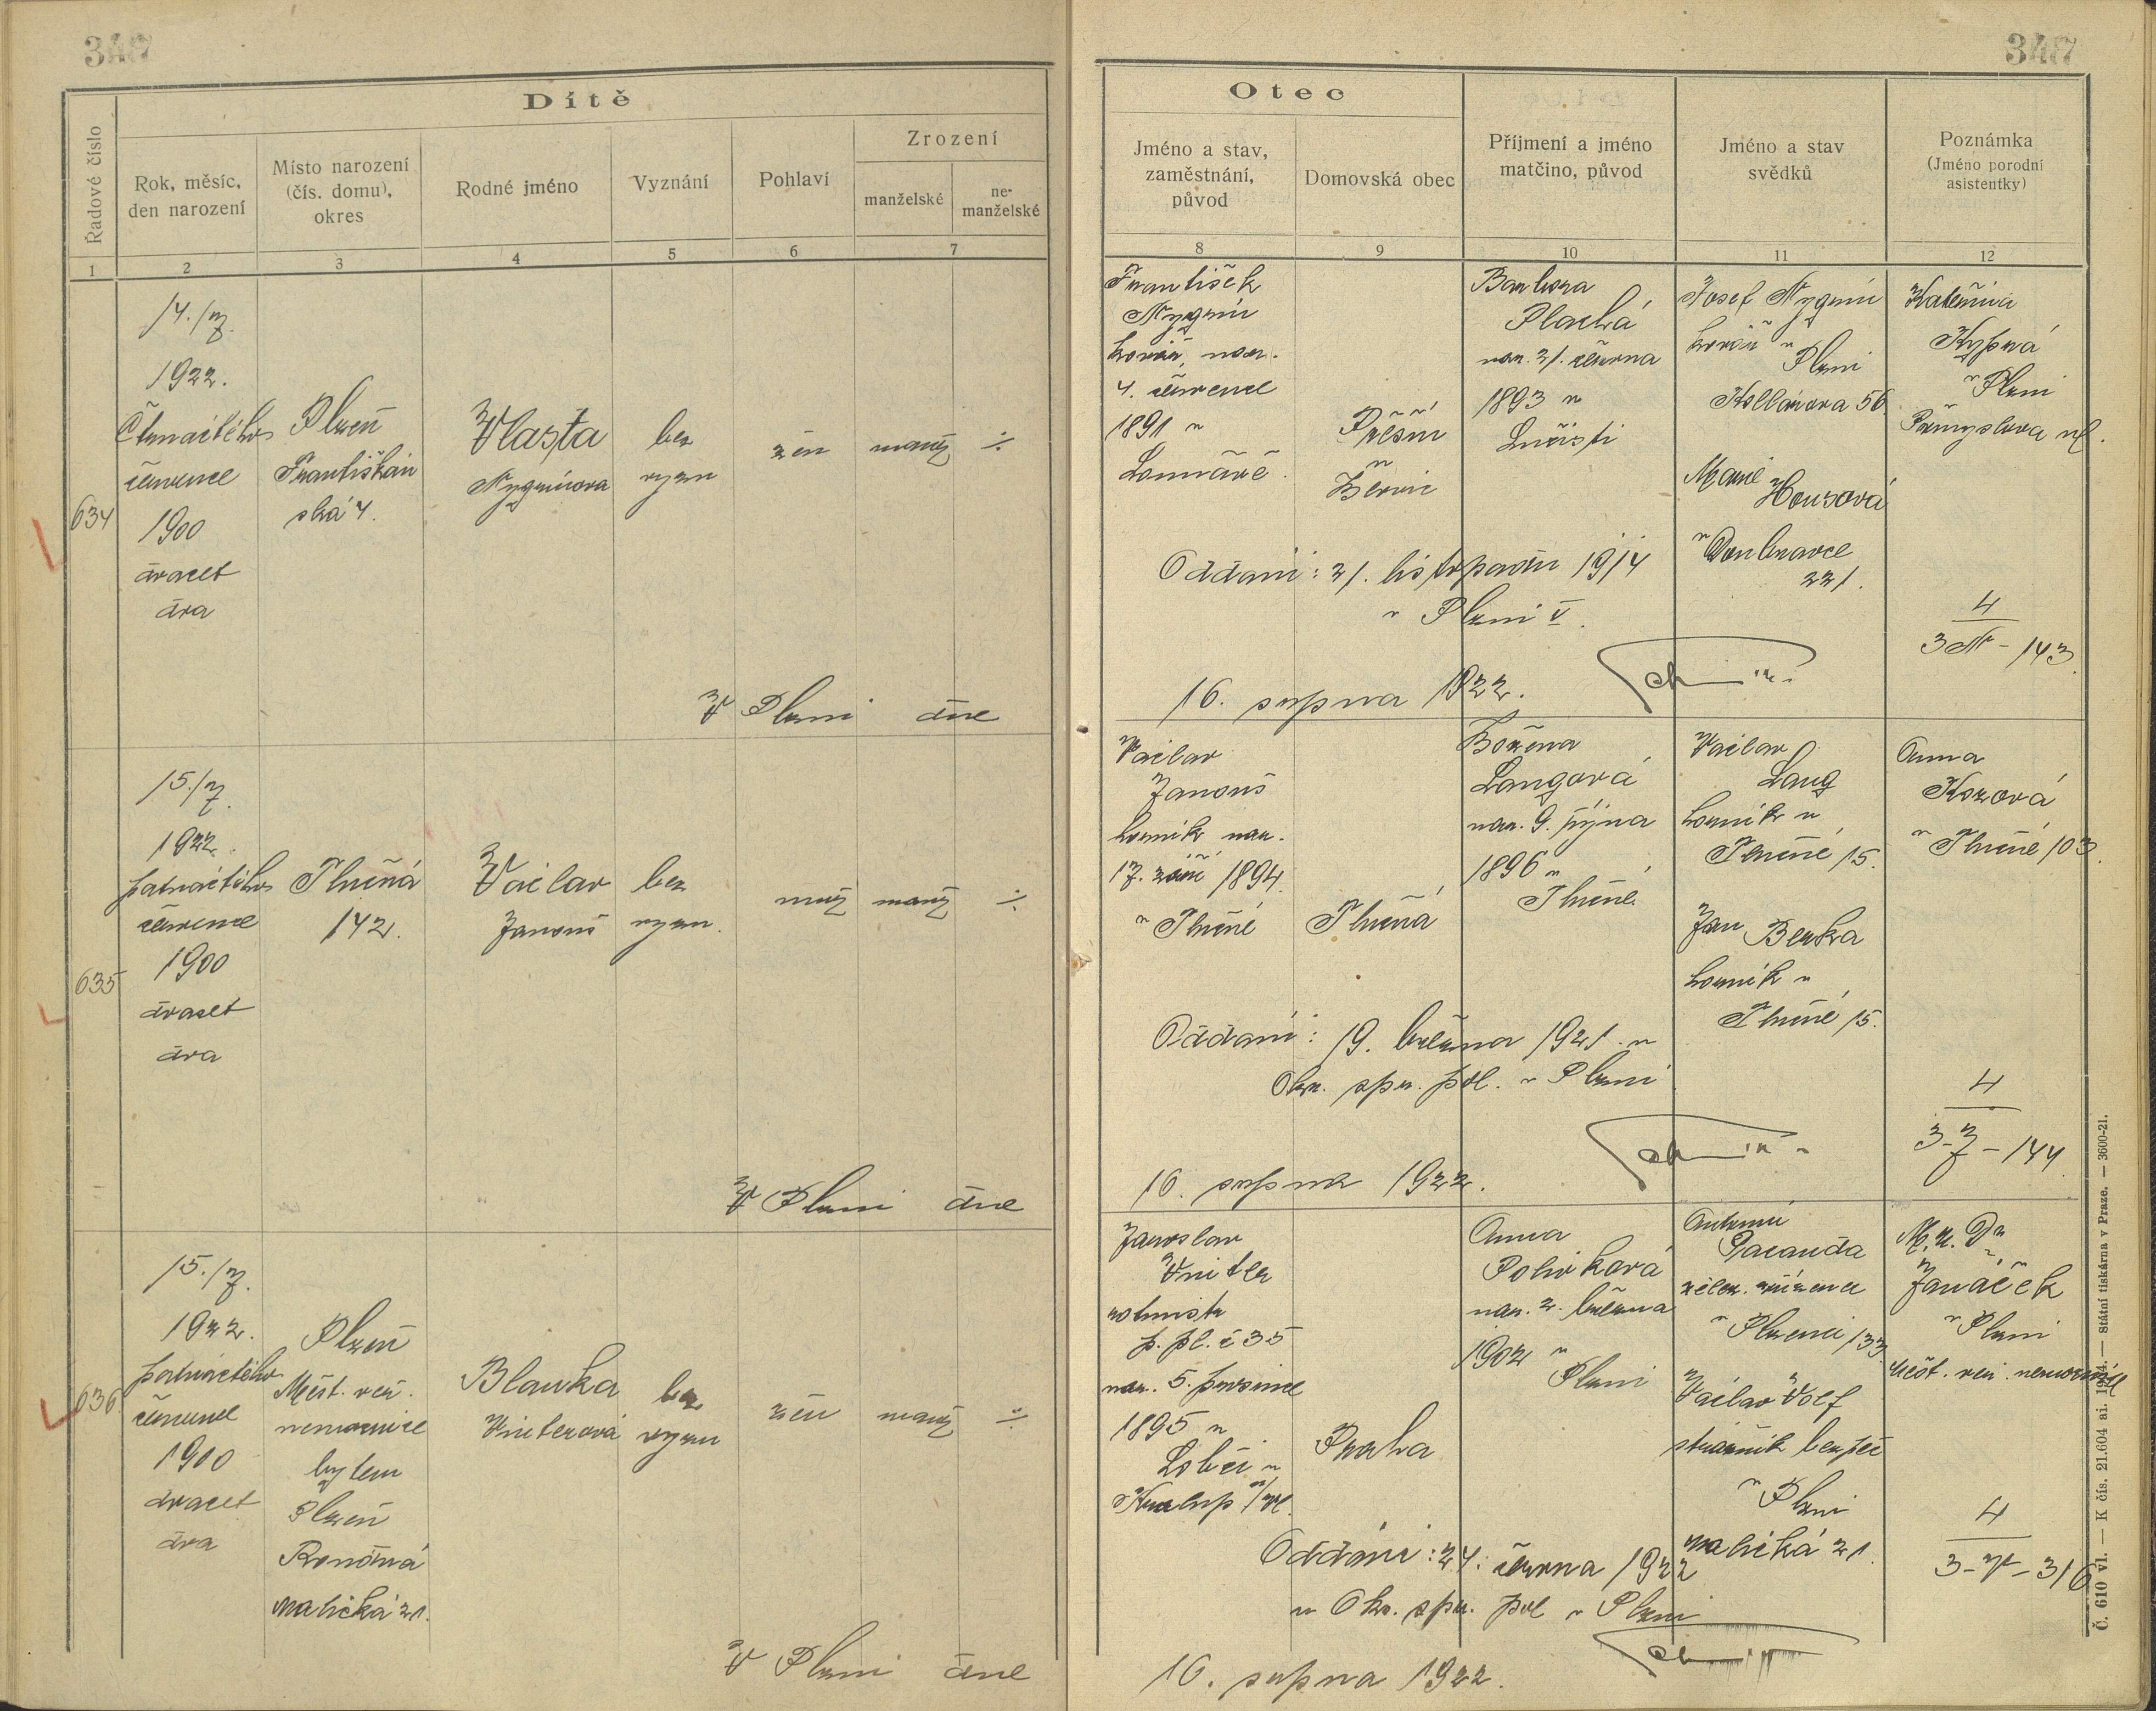 348
347
Dítě
Řadové číslo
Rok, měsíc,
den narození
Místo narození
(čís. domu),
okres
Rodné jméno
Vyznání
Pohlaví
Zrození
manželské
ne-
manželské
1
2
3
4
5
6
7
634
14./7.
1922.
Čtrnáctého
července
1900
dvacet
dva
Plzeň
Františkán
ská 4.
Vlasta
Nygrínova
bez
vyzn
žen
manž
÷
V Plzni dne
635
15./7.
1922.
patnáctého
července
1900
dvacet
dva
Tlučná
142.
Václav
Janouš
bez
vyzn.
muž
manž
÷
V Plzni dne
636
15./7.
1922.
patnáctého
července
1900
dvacet
dva
Plzeň
Měst. veř.
nemocnice
bytem
Plzeň
Rondná
malická 21.
Blanka
Vniterová
bez
vyzn
žen
manž
÷
V Plzni dne
Otec
Jméno a stav,
zaměstnání,
původ
Domovská obec
Příjmení a jméno
matčino, původ
Jméno a stav
svědků
Poznámka
(Jméno porodní
asistentky)
8
9
10
11
12
František
Nygrín
kovář, nar.
4. července
1891 v
Přešín
v
Barbora
Plachá
nar. 21. června
1893 v
Josef Nygrín
kovář v
Plzni
Kollárova 56
Marie
Houzová
v Doubravce
221.
Kateřina
Kypná
v Plzni
Přemyslova ul.
Oddáni: 21. listopadu 1914
v Plzni V.
4
3 N - 143
16. srpna 1922.
Václav
Janouš
horník nar.
17. září 1894.
v Tlučné
Tlučná
Božena
Langová
nar. 9. října
1896 v
Tlučné
Václav
Lang
horník v
Tlučné 15.
Jan Berka
horník v
Tlučné 15.
Anna
Kozová
v Tlučné 103.
Oddáni: 19. března 1921 v
Okr. spr. pol. v Plzni
4
3-J-144
16. srpna 1922.
Jaroslav
Vniter
rotmistr
p. pl. č 35
nar. 5. prosince
1895 v
Lobči v
Kralup n/Vl.
Praha
Anna
Polívková
nar. 2. března
1902 v
Plzni
Antonín
Pacanda
želez. zřízenec
v Plzenci 133
Václav Volf
strážník bezpeč
v Plzni
malická 21.
M. u. Dr
Janáček
v Plzni
měst. veř. nemocnice
Oddáni: 24. června 1922
u Okr. spr. pol v Plzni
4
3-V-316
16. srpna 1922.
Č. 610 vl. — K čís. 21.604 ai. 1924. — Státní tiskárna v Praze. — 3600-21.